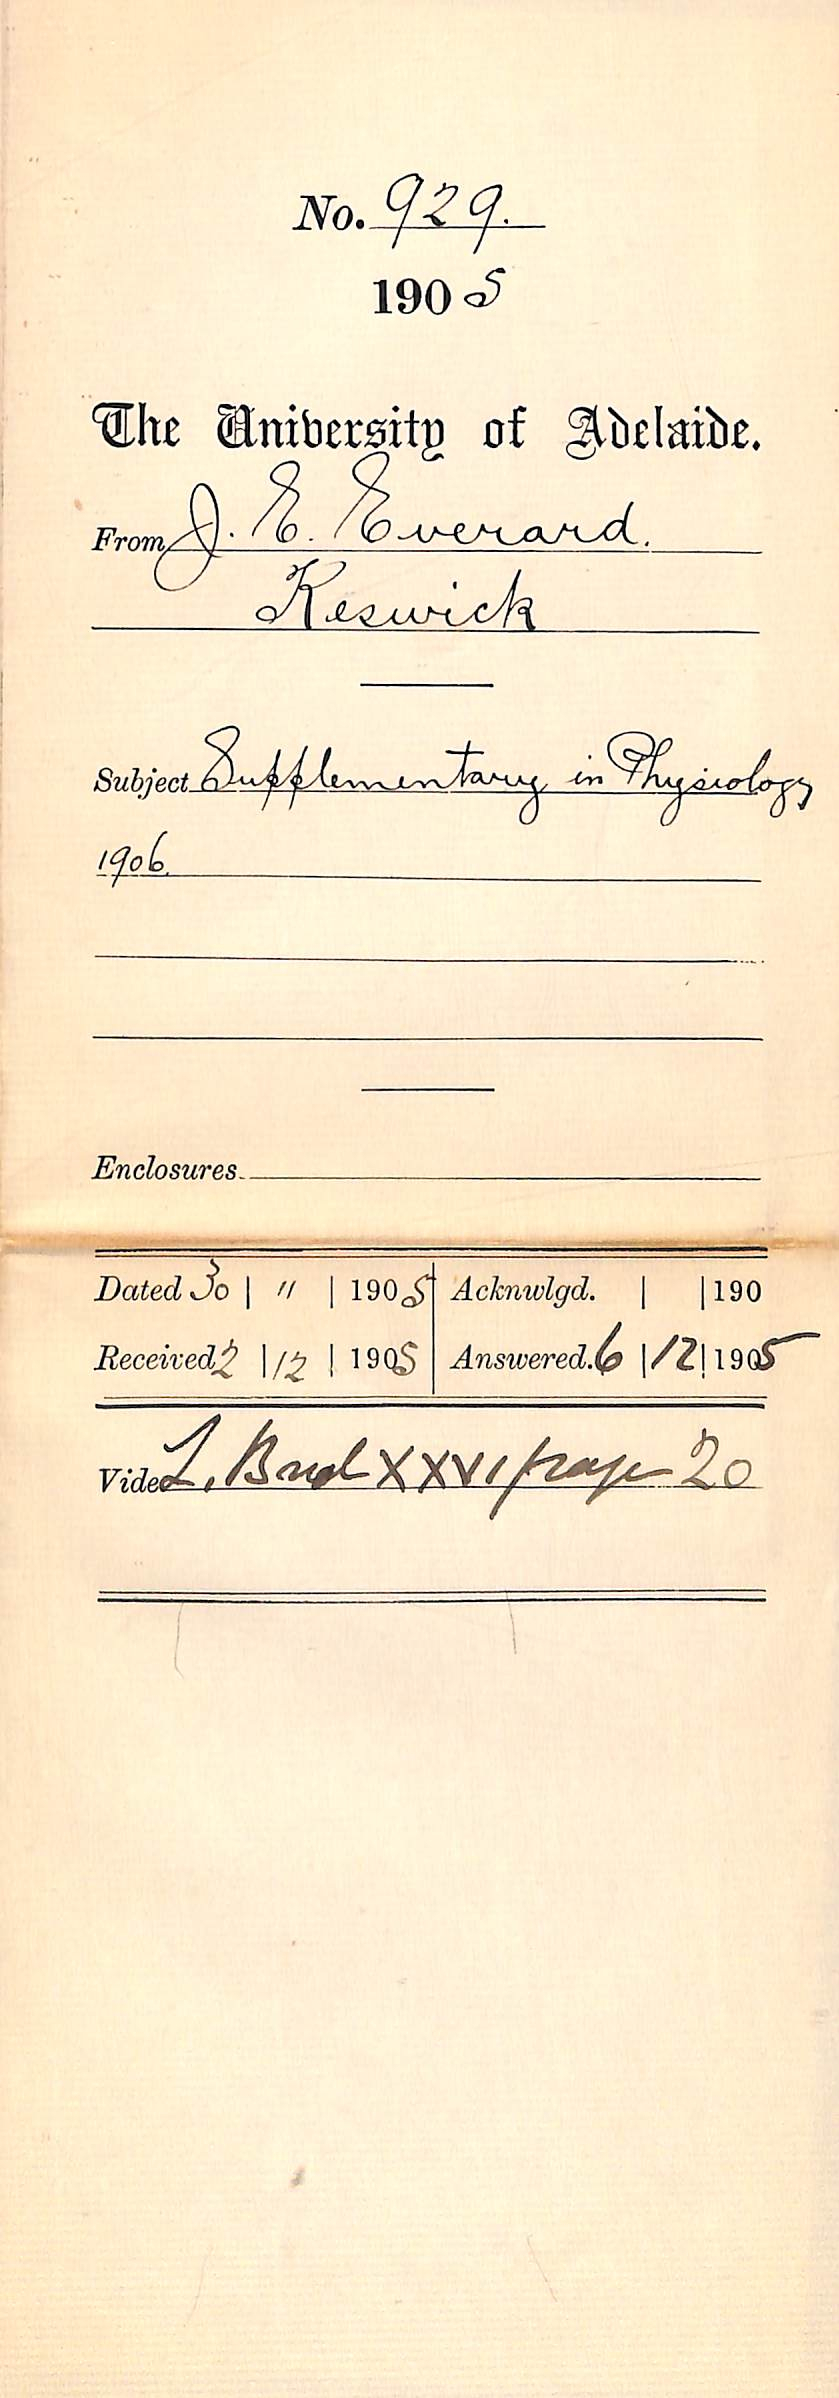 No. 929.
1905
The University of Adelaide.
From J. E. Everard.
Keswick
Subject Supplementary in Physiology
1906.
Enclosures
Dated 30 | 11 | 1905 Acknwlgd. | | 190
Received 2 | 12 | 1905 Answered. 6 | 12 | 1905
Vide L. XXVI page 20